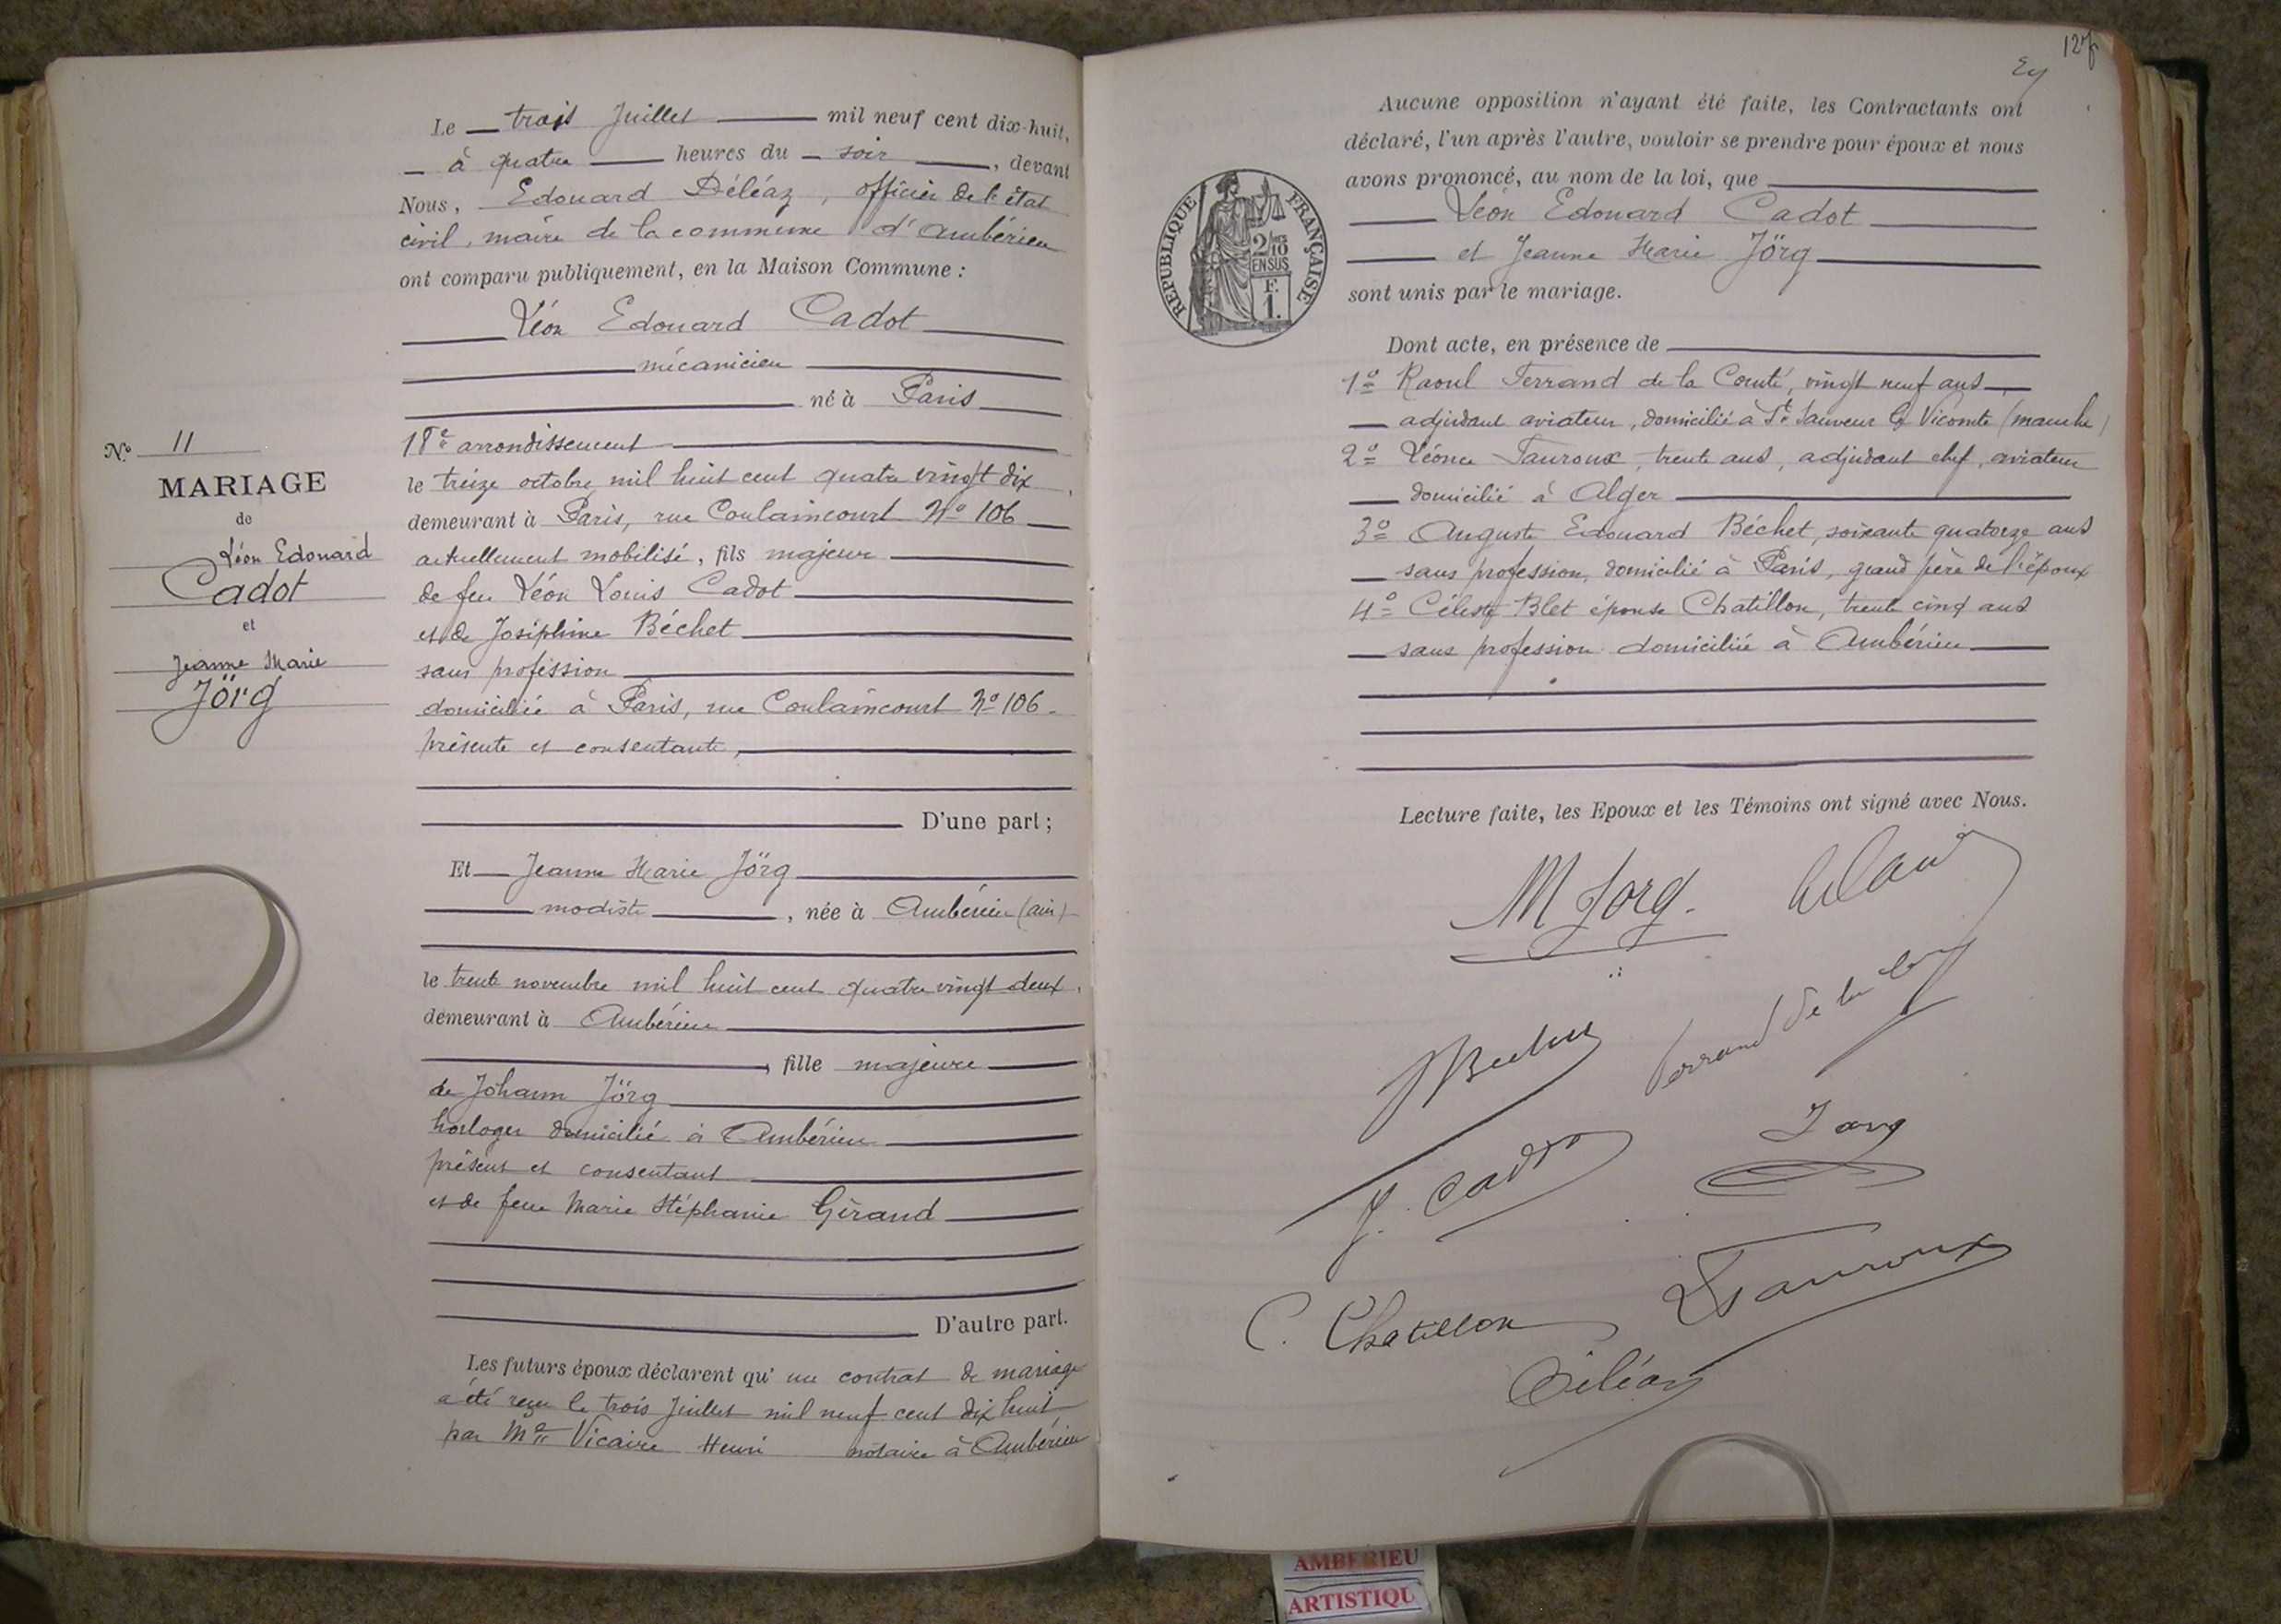 Le trois Juillet mil neuf cent dix-huit,
à quatre heures du soir, devant
Nous, Edouard Déléaz, officier de l'état
civil, maire de la commune d'Ambérieu
ont comparu publiquement, en la Maison Commune :
Léon Edouard Cadot
mécanicien
né à Paris
18e arrondissement
le treize octobre mil huit cent quatre vingt dix,
demeurant à Paris, rue Coulaincourt No 106
actuellement mobilisé, fils majeur
de feu Léon Louis Cadot
et de Joséphine Béchet
sans profession
domiciliée à Paris, rue Coulaincourt No 106
présente et consentante,
D'une part ;
Et Jeanne Marie Jörg
modiste, née à Ambérieu (ain)
le trente novembre mil huit cent quatre vingt deux,
demeurant à Ambérieu
, fille majeure
de Johann Jörg
horloger domicilié à Ambérieu
présent et consentant
et de feue Marie Stéphanie Girand
D'autre part.
Les futurs époux déclarent qu'un contrat de mariage
a été reçu le trois Juillet mil neuf cent dix huit
par Me Vicaire Henri notaire à Ambérieu
No 11
MARIAGE
de
Léon Edouard
Cadot
et
Jeanne Marie
Jörg
Aucune opposition n'ayant été faite, les Contractants ont
déclaré, l'un après l'autre, vouloir se prendre pour époux et nous
avons prononcé, au nom de la loi, que
Léon Edouard Cadot
et Jeanne Marie Jörg
sont unis par le mariage.
REPUBLIQUE FRANÇAISE
2/10
EN SUS
F.
1.
Dont acte, en présence de
1o Raoul Ferrand de la Conté, vingt neuf ans
adjudant aviateur, domicilié à St Sauveur le Vicomte (manche)
2o Léonce Tauroux, trente ans, adjudant chef, aviateur
domicilié à Alger
3o Auguste Edouard Béchet, soixante quatorze ans
sans profession, domicilié à Paris, grand père de l'époux
4o Céleste Blet épouse Chatillon, trente cinq ans
sans profession domiciliée à Ambérieu
Lecture faite, les Epoux et les Témoins ont signé avec Nous.
M Jorg
Ferrand de la
J. Cadot
Jorg
C. Chatillon
Tauroux
Déléaz
AMBERIEU
ARTISTIQU